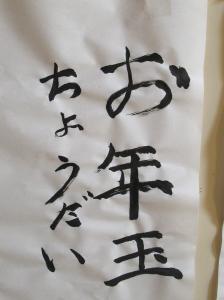 お年玉
ちょうだい